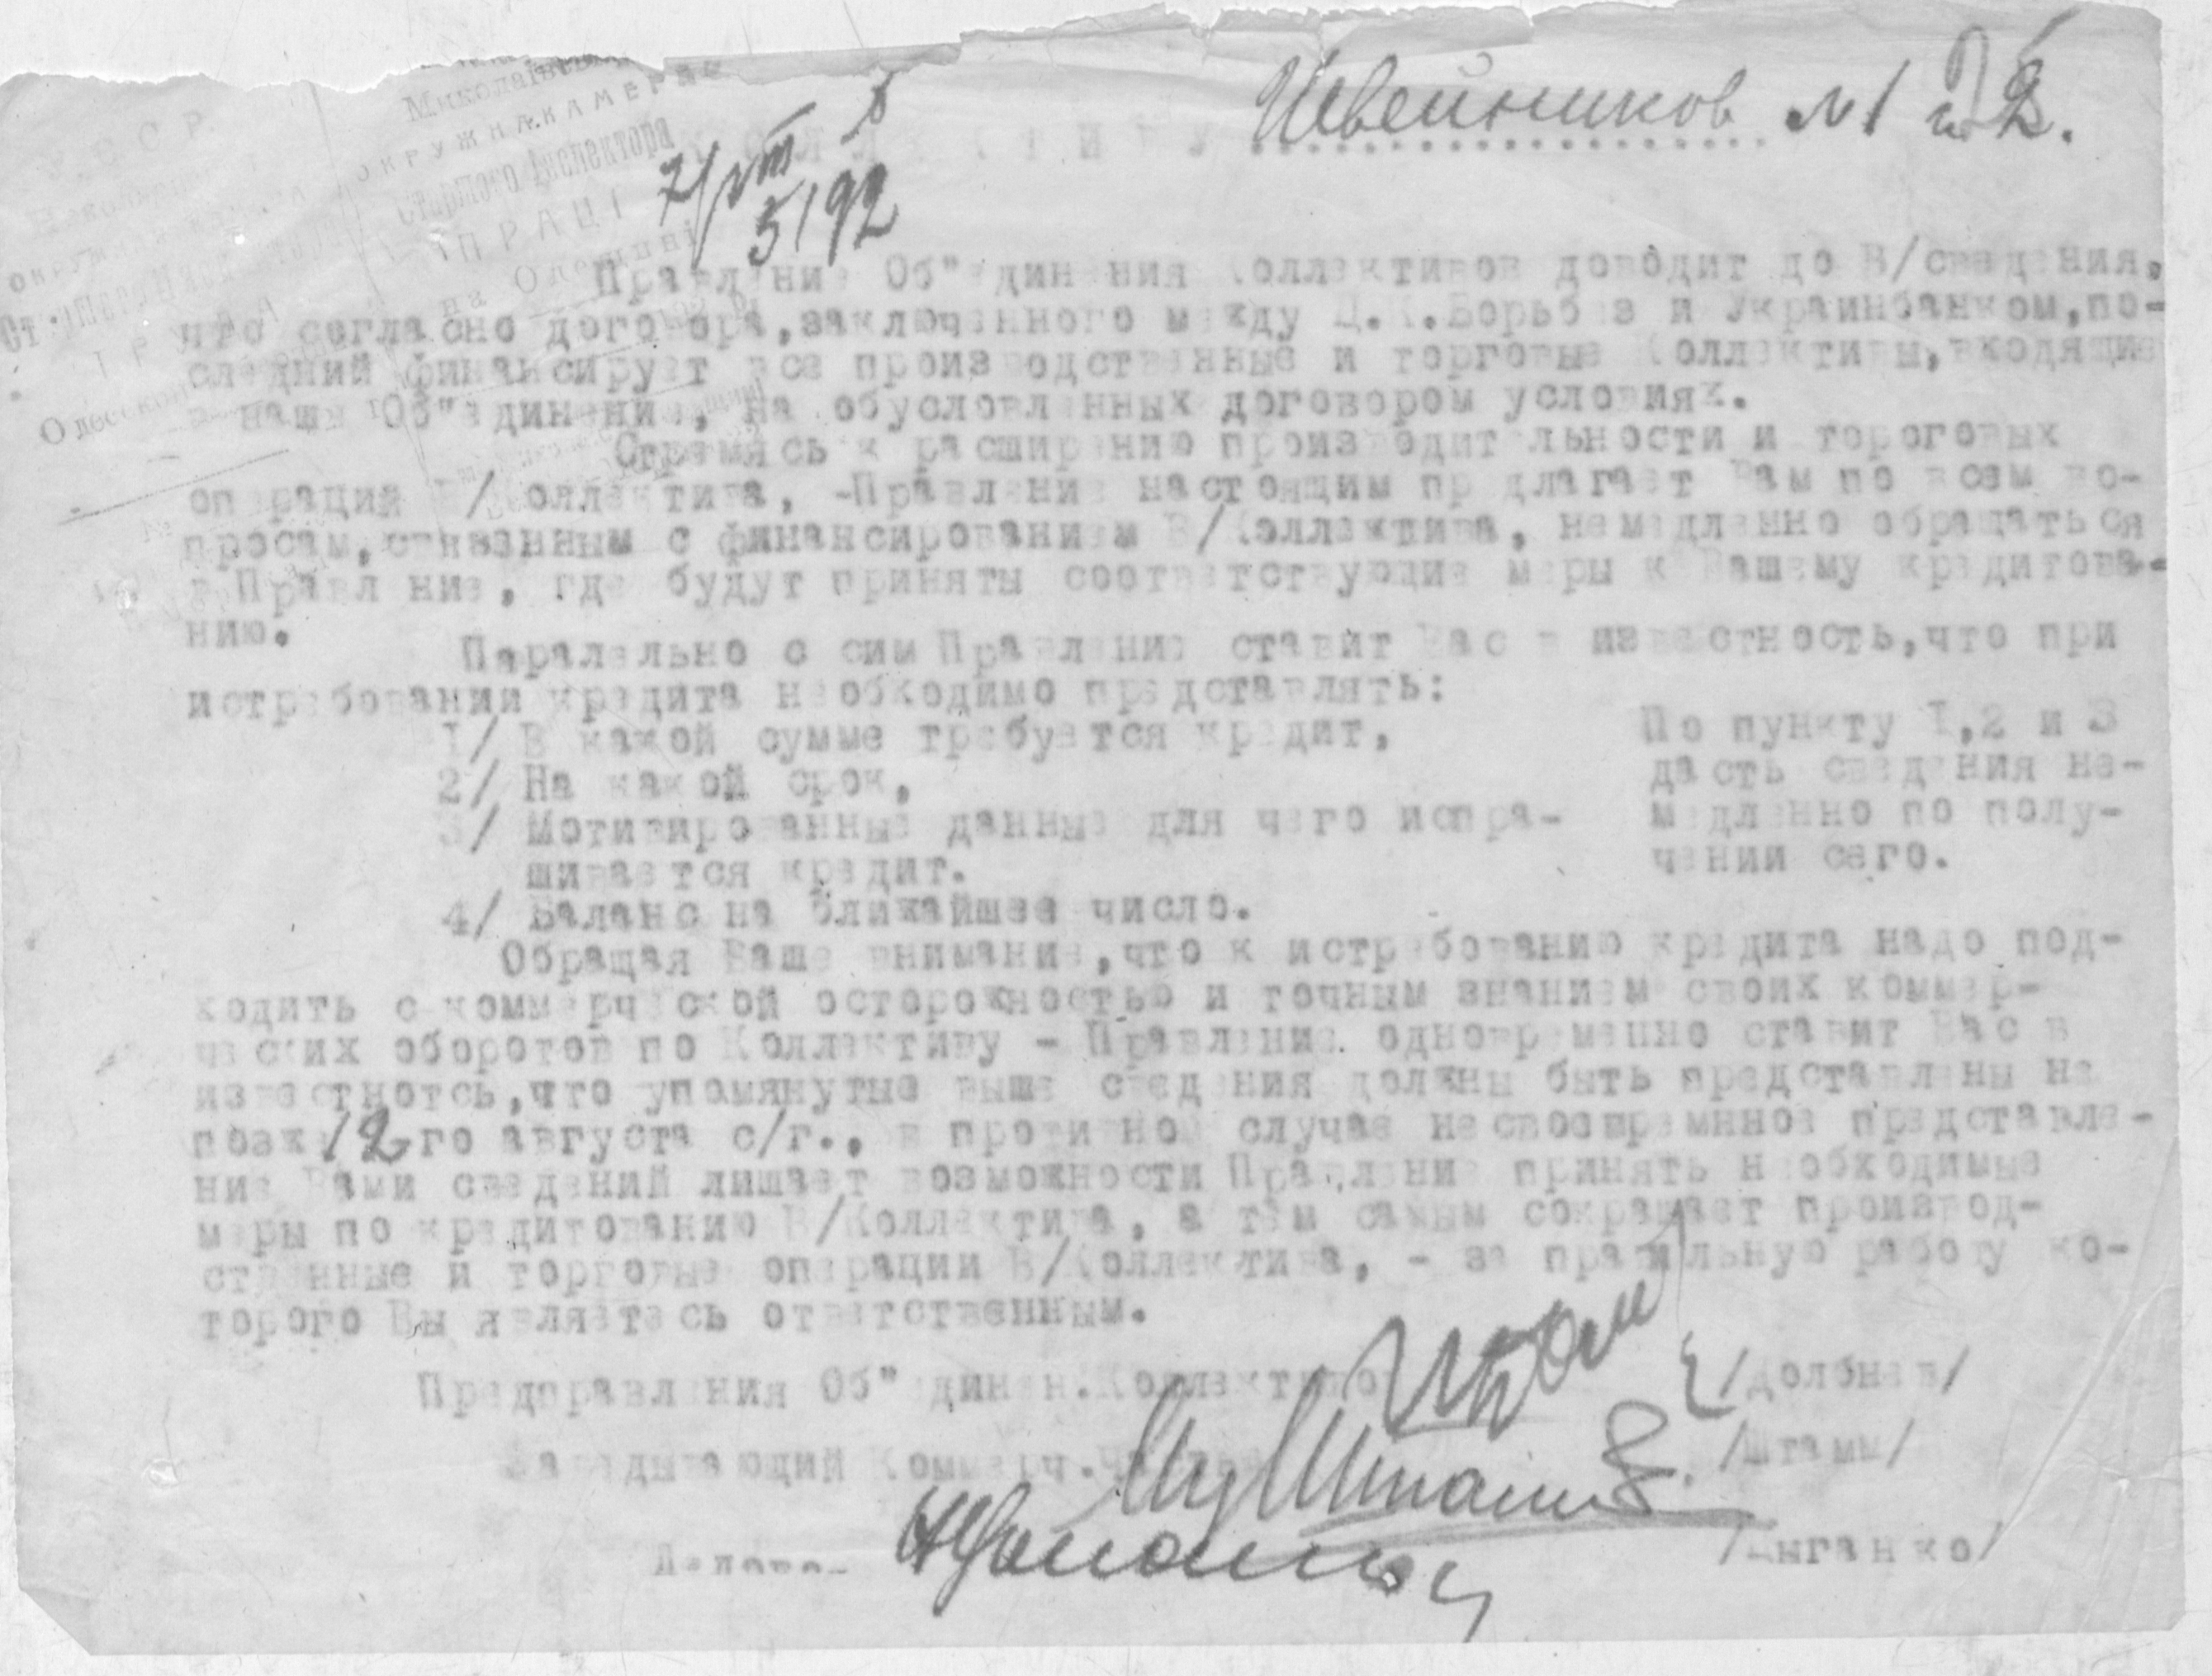 Миколаїв
ОКРУЖНА КАМЕРА
Старшого Інспектора
ПРАЦІ
на Одещині
Одесской
7/VIII
5192
КОЛЛЕКТИВУ Швейников №1 и 2.
Правление Об"единения Коллективов доводит до В/сведения,
что согласно договора,заключенного между Д.К.Борьбез и Украинбанком,по-
следний финансирует все производственные и торговые Коллективы,входящие
в наше Об"единение, на обусловленных договором условиях.
Стремясь к расширению производительности и тороговых
операций В/Коллектива, -Правление настоящим предлагает Вам по всем во-
просам,связанным с финансированием В/Коллектива, немедленно обращаться
в Правление, где будут приняты соответствующие меры к Вашему кредитова-
нию.
Паралельно с сим Правление ставит Вас в известность,что при
истребовании кредита необходимо представлять:
1/ В какой сумме требуется кредит,
2/ На какой срок,
3/ Мотивированные данные для чего испра-
шивается кредит.
По пункту 1,2 и 3
дасть сведения не-
медленно по полу-
чении сего.
4/ Баланс на ближайшее число.
Обращая Ваше внимание,что к истребованию кредита надо под-
ходить с коммерческой осторожностью и точным знанием своих коммер-
ческих оборотов по Коллективу - Правление одновременно ставит Вас в
известнотсь,что упомянутые выше сведения должны быть представлены не
позже 12го августа с/г., в противном случае несвоевременное представле-
ние Вами сведений лишает возможности Правление принять необходимые
меры по кредитованию В/Коллектива, а тем самым сокращает производ-
ственные и торговые операции В/Коллектива, - за правильную работу ко-
торого Вы являетесь ответственным.
Предправления Об"единен.Коллективов /Долбнев/
Заведывающий Коммерч.Частью /Штамм/
Делово- /Цыганко/